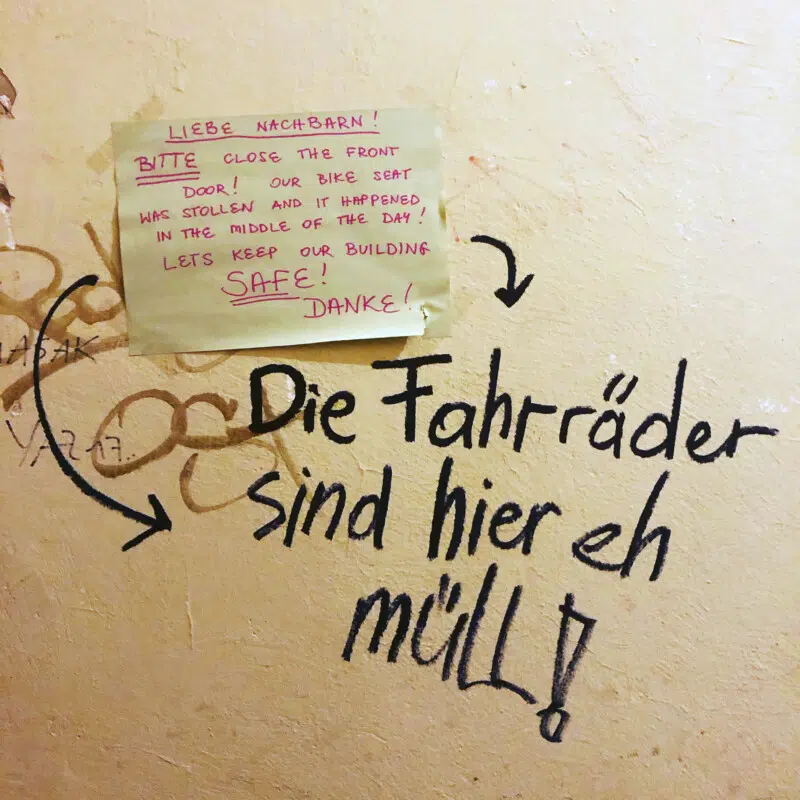 LIEBE NACHBARN!
BITTE CLOSE THE FRONT
DOOR! OUR BIKE SEAT
WAS STOLLEN AND IT HAPPENED
IN THE MIDDLE OF THE DAY!
LETS KEEP OUR BUILDING
SAFE!
DANKE!
Die Fahrräder
sind hier eh
müll!